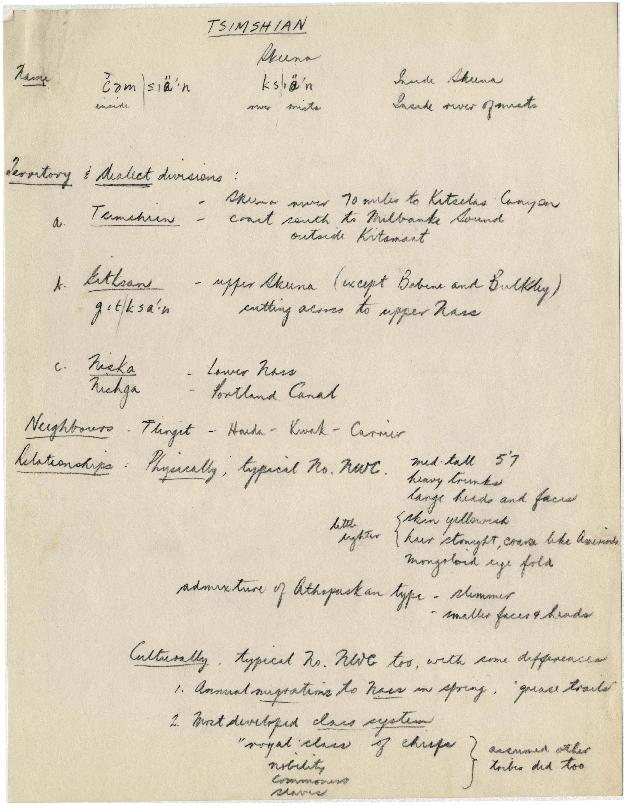 TSIMSHIAN
Skeena
Name c̓əm|siä'n ks|iä'n Inside Skeena
inside river mists Inside river of mists
Territory & dialect divisions:
a. Tsimshian - Skeena river 70 miles to Kitselas Canyon
- coast south to Milbanke Sound
outside Kitamaat
b. Githsans - upper Skeena (except Babine and Bulkley)
git/ksa'n cutting across to upper Nass
c. Niska - Lower Nass
Nishga - Portland Canal
Neighbours - Tlinget - Haida - Kwak - Carrier
Relationships: Physically, typical No. NWC. med-tall 5'7
heavy trunks
large heads and faces
little lighter { skin yellowish
hair straight, coarse like Amerinds
Mongoloid eye fold
admixture of Athapaskan type - slimmer
- smaller faces & heads
Culturally, typical No. NWC too, with some differences
1. Annual migrations to Nass in spring, "grease trails"
2. Most developed class system
"royal" class of chiefs } assumed other
nobility tribes did too
commoners
slaves